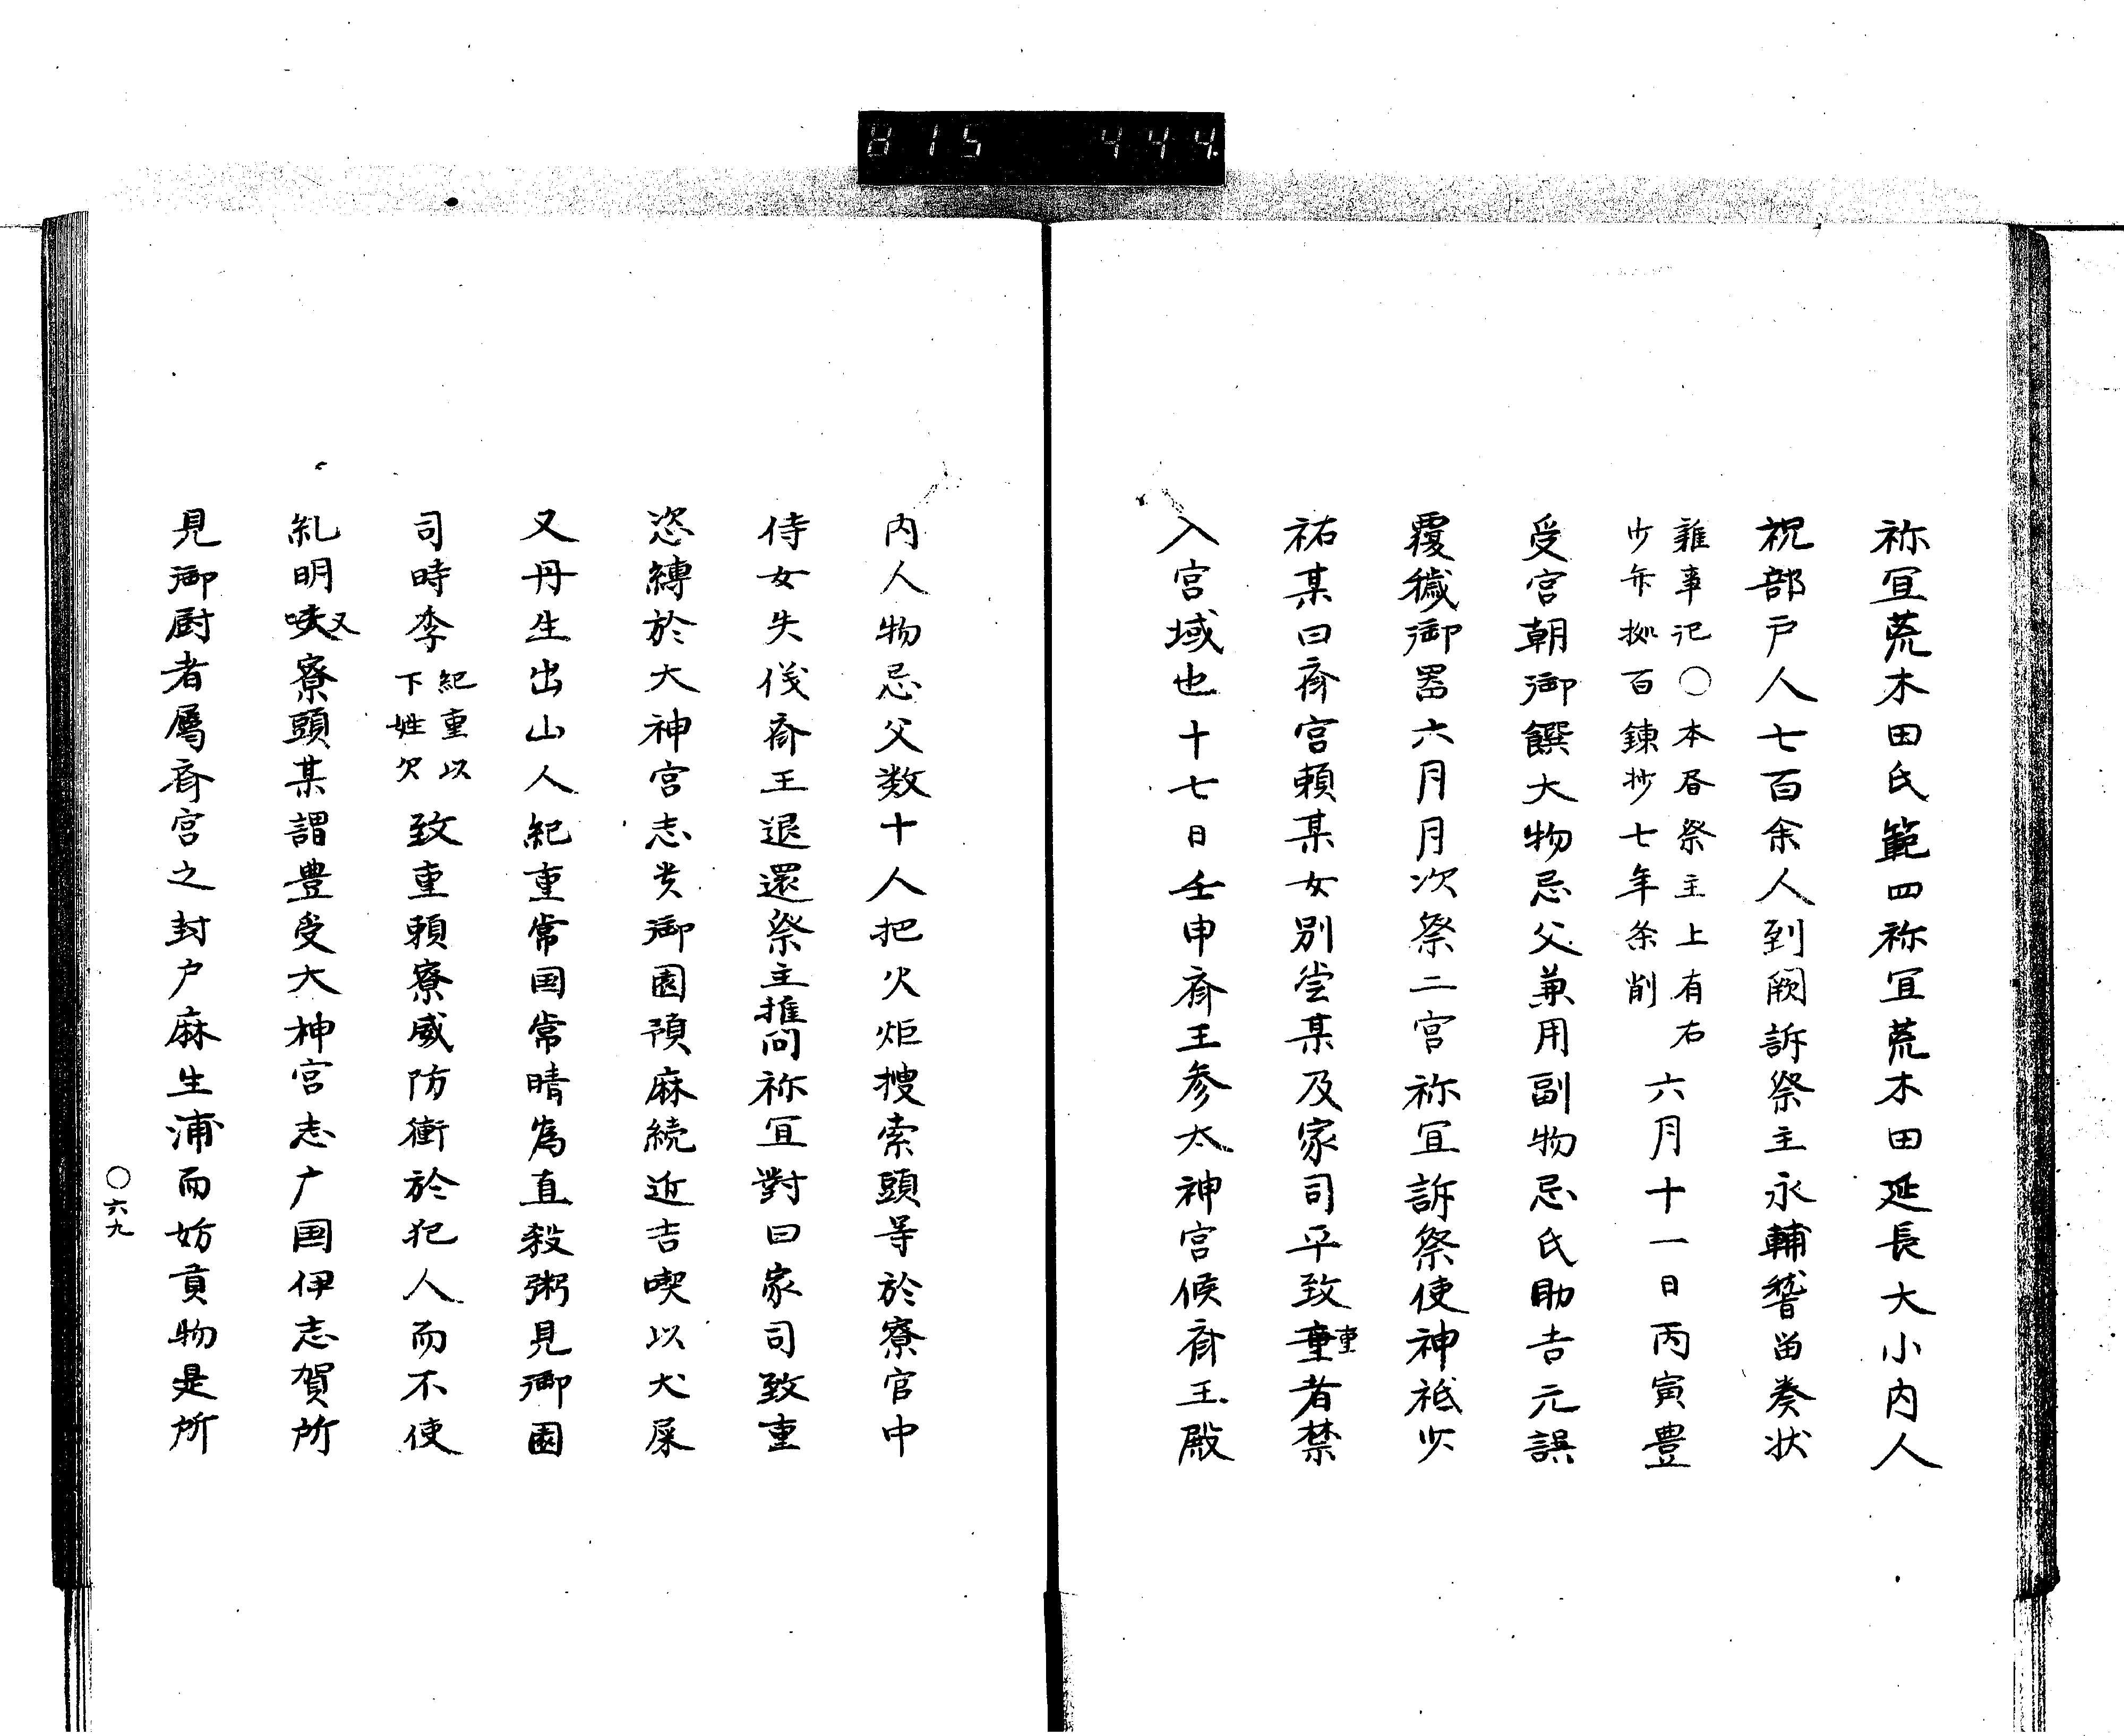 815 444
祢宜荒木田氏範四祢宜荒木田延長大小内人
祝部戸人七百余人到闕訴祭主永輔嵆畄奏状
雑事記〇本昏祭主上有右
少字拠百錬抄七年条削
六月十一日丙寅豊
受宮朝御饌大物忌父兼用副物忌氏助吉元誤
覆穢御器六月月次祭二宮祢宜訴祭使神祗少
祐某曰斎宮頼某女別当某及家司平致童重者禁
入宮域也十七日壬申斎王参太神宮候斎王殿
内人物忌父数十人把火炬捜索頭等於寮官中
侍女失伐斎王退還祭主推問祢宜對曰家司致重
恣縛於大神宮志貴御園預麻続近吉喫以犬屎
又丹生出山人紀重常国常晴為直殺粥見御園
司時季
紀重以
下姓欠
致重頼寮威防衛於犯人而不使
糺明又寮頭某謂豊受大神宮志广国伊志賀所
見御厨者属斎宮之封户麻生浦而妨貢物是所
〇六九